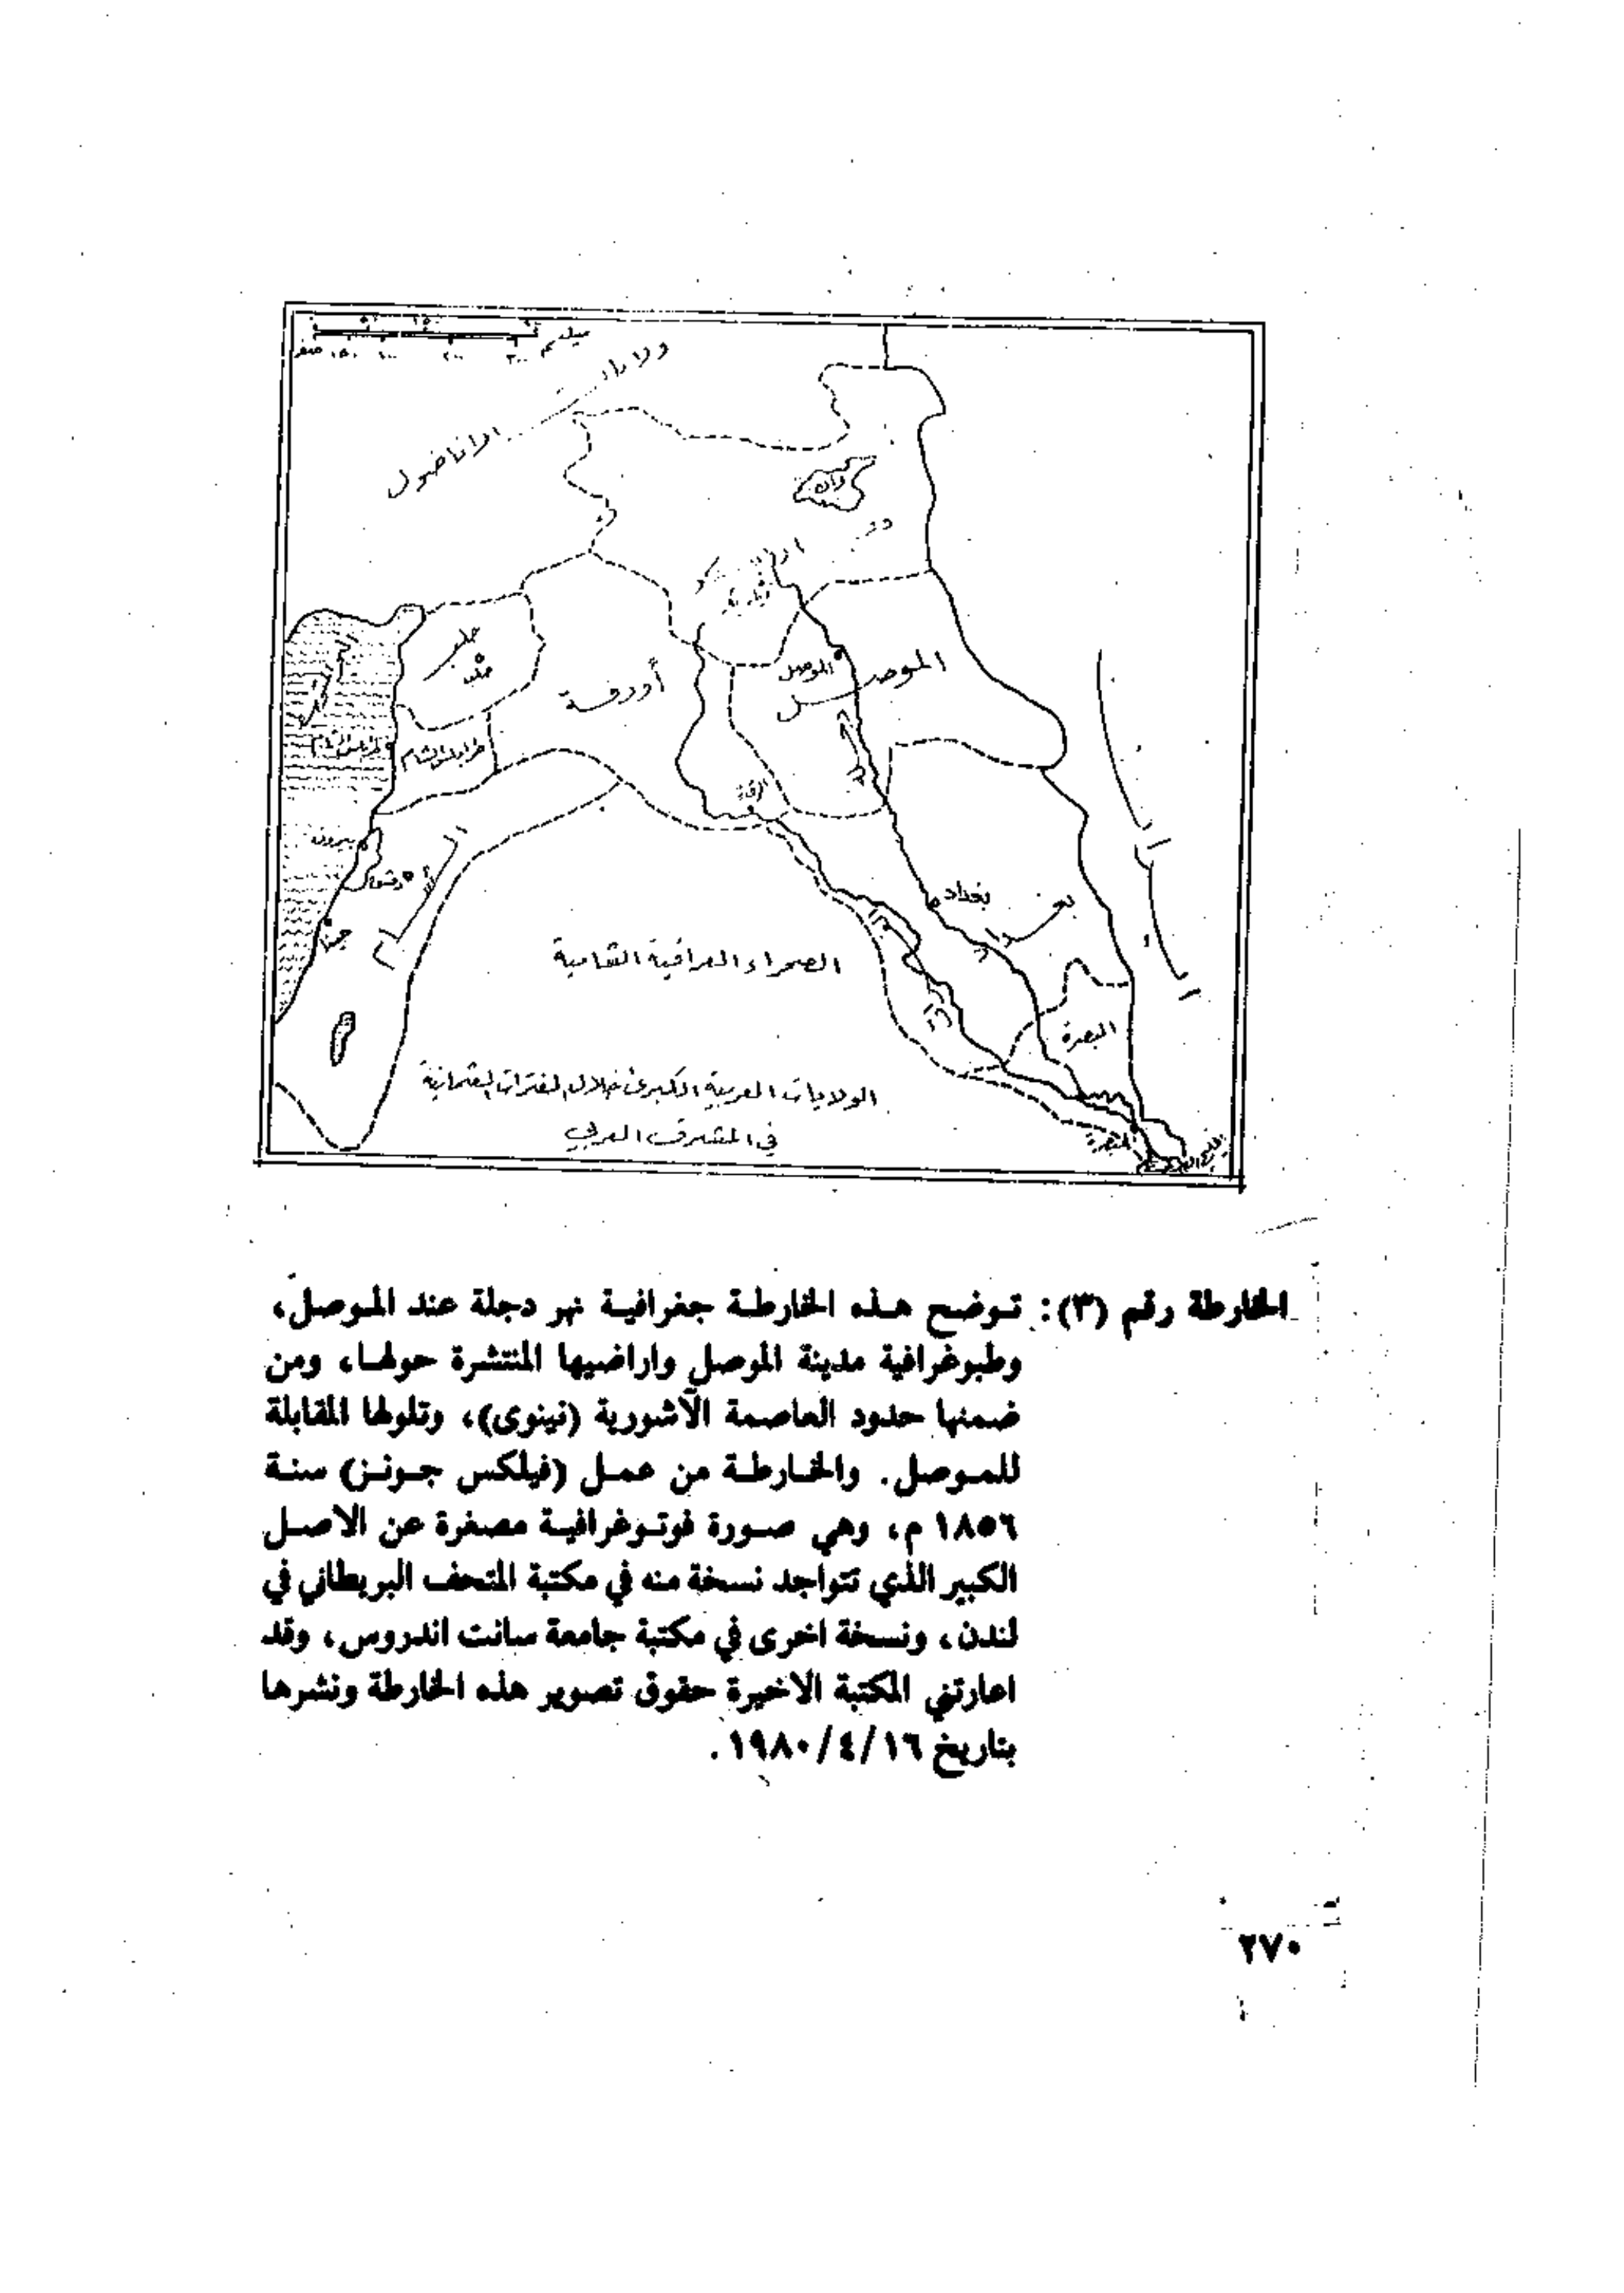 ولايات
الاناضول
وان
حلب
حلب
أورفة
الموصل
الموصل
طرابلس الشام
طرابلس الشام
الرقة
بيروت
دمشق
بغداد
بغداد
الصحراء العراقية الشامية
البصرة
الولايات العربية الكبرى خلال الفترات العثمانية
في المشرق العربي
البصرة
الخارطة رقم (٣): تـوضـح هـذه الخارطـة جغرافيـة نهر دجلة عند الموصل،
وطبوغرافية مدينة الموصل واراضيها المنتشرة حولها، ومن
ضمنها حدود العاصمة الآشورية (نينوى)، وتلولها المقابلة
للمـوصل. والخـارطـة من عمـل (فيلكس جـونـز) سنـة
١٨٥٦ م، وهي صـورة فوتـوغرافيـة مصغرة عن الاصـل
الكبير الذي تتواجد نسخة منه في مكتبة المتحف البريطاني في
لندن، ونسخة اخرى في مكتبة جامعة سانت اندروس، وقد
اعارتني المكتبة الاخيرة حقوق تصوير هذه الخارطة ونشرها
بتاريخ ١٦/ ٤/ ١٩٨٠.
٢٧٠